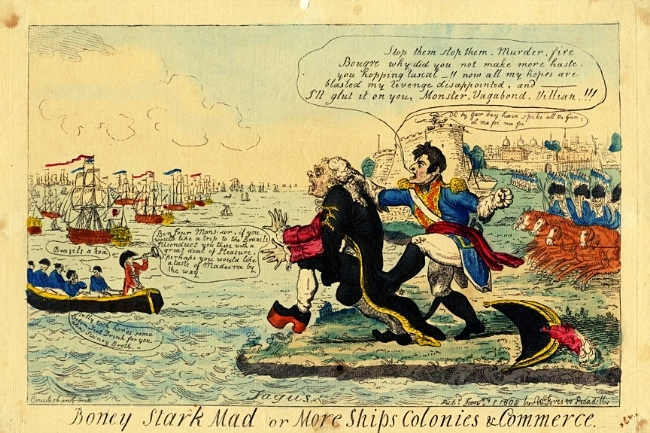 Stop them stop them. Murder, fire
Bougre why did you not make more haste.
you hopping rascal _!! now all my hopes are
blasted my revenge disappointed, and
I'll glut it on you, Monster, Vagabond, Villian !!!
have spike all the Gun
Bon jour Monsieur, if you
would like a trip to the Brazils
I'll conduct you there with a
great deal of Pleasure,
perhaps you would like
a taste of Madeira by
the way.
Brazils a hoa
some
drink for you
Broth
Tagus
Cruikshank
Pubd. Jany. 1 1808 by SW Fores 50 Piccadilly
Boney Stark Mad or More Ships Colonies & Commerce.